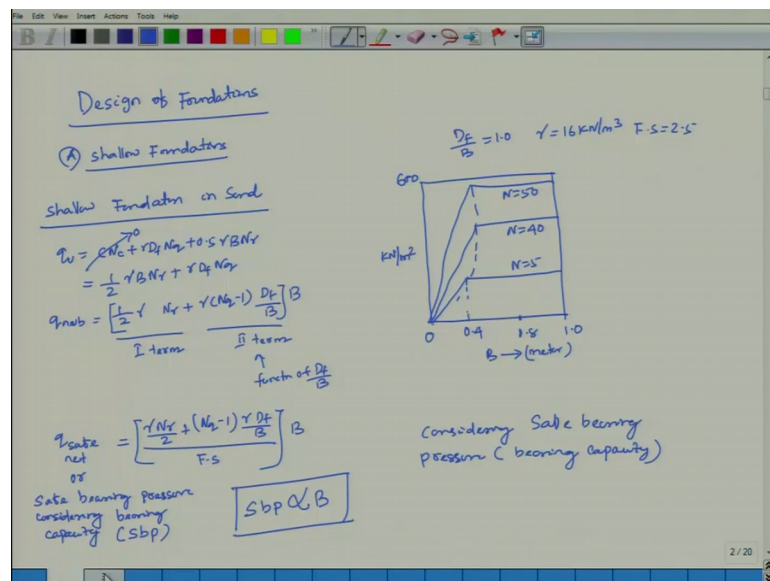 File Edit View Insert Actions Tools Help
Design of Foundations
(A) Shallow Foundations
Shallow Foundation in Sand
qu = cNc + γDf Nq + 0.5 γBNγ
0
= 1/2 γBNγ + γDf Nq
qnub = [1/2 γ Nγ + γ(Nq-1) Df/B] B
I term II term
↑
functn of Df/B
qsafe net = [(γNγ/2 + (Nq-1) γ Df/B) / F.S] B
or
Safe bearing pressure
considering bearing
capacity (Sbp)
Sbp ∝ B
Df/B = 1.0 γ = 16 KN/m³ F.S = 2.5
600
N=50
KN/m²
N=40
N=5
0 0.4 0.8 1.0
B → (meter)
Considering Safe bearing
pressure (bearing capacity)
2 / 20